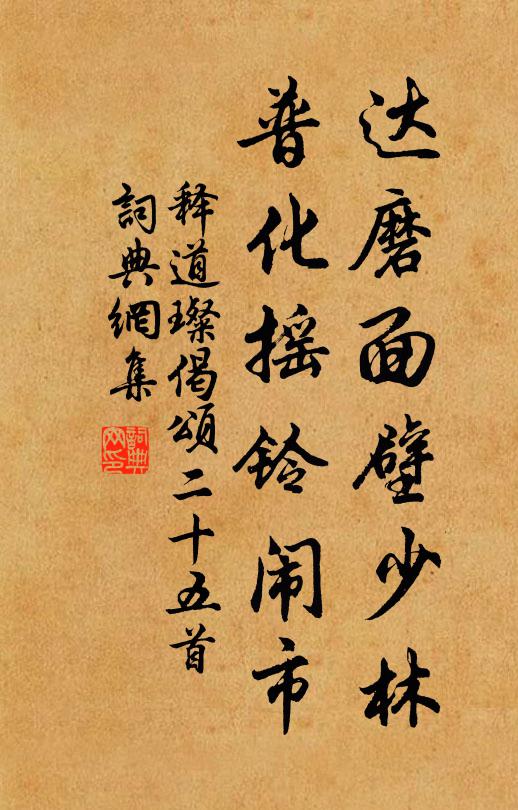 达磨面壁少林
普化摇铃闹市
释道璨偈頌二十五首
詞典網集
詞典网印